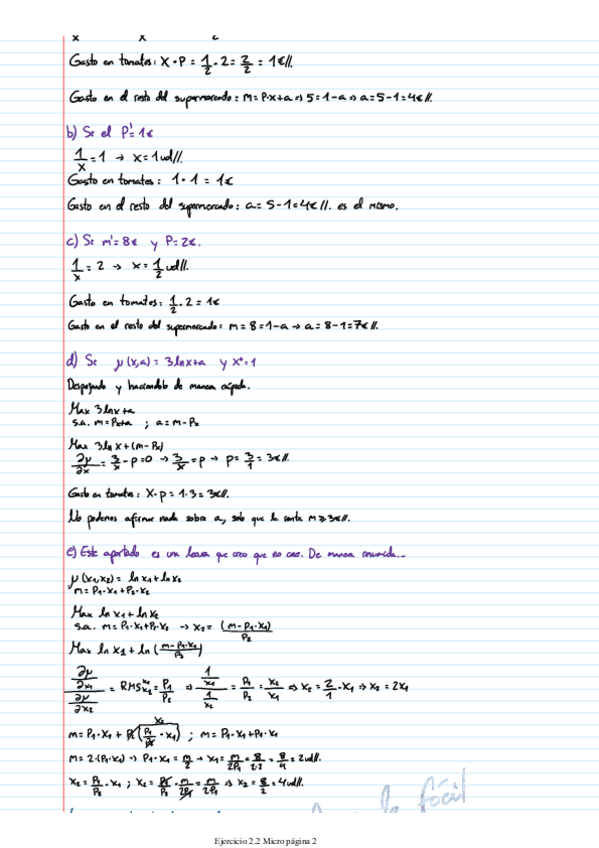 x x c
Gasto en tomates: X · P = 1/2 · 2 = 2/2 = 1€//.
Gasto en el resto del supermercado: m = P·x + a ⇒ 5 = 1 - a ⇒ a = 5 - 1 = 4€//.
b) Si el P' = 1€
1/x = 1 → x = 1 ud//.
Gasto en tomates: 1 · 1 = 1€
Gasto en el resto del supermercado: a = 5 - 1 = 4€//. es el mismo.
c) Si m' = 8€ y P = 2€.
1/x = 2 → x = 1/2 ud//.
Gasto en tomates: 1/2 · 2 = 1€
Gasto en el resto del supermercado: m = 8 = 1 - a → a = 8 - 1 = 7€//.
d) Si μ(x,a) = 3lnx+a y x* = 1
Despejando y haciendolo de manera rápida.
Max 3lnx+a
s.a. m = Px+a ; a = m - Px
Max 3 ln x + (m - Px)
∂μ/∂x = 3/x - p = 0 → 3/x = p → p = 3/1 = 3€//.
Gasto en tomates: X · p = 1 · 3 = 3€//.
No podemos afirmar nada sobre a, solo que la renta m ≥ 3€//.
e) Este apartado es una locura que creo que no cae. De manera resumida...
μ(x₁,x₂) = ln x₁ + ln x₂
m = P₁·x₁ + P₂·x₂
Max ln x₁ + ln x₂
s.a. m = P₁·x₁+P₂·x₂ → x₂ = (m - p₁·x₁)/P₂
Max ln x₁ + ln (m - p₁·x₁/P₂)
∂μ/∂x₁ / ∂μ/∂x₂ = RMS = P₁/P₂ ⇒ 1/x₁ / 1/x₂ = P₁/P₂ = x₂/x₁ ⇒ x₂ = 2/1 · x₁ ⇒ x₂ = 2x₁
x₂
m = P₁·x₁ + P₂(P₁/P₂ · x₁) ; m = P₁·x₁ + P₁·x₁
m = 2·(P₁·x₁) ⇒ P₁·x₁ = m/2 → x₁ = m/2P₁ = 8/2·2 = 8/4 = 2 ud//.
x₂ = P₁/P₂ · x₁ ; x₂ = P₁/P₂ · m/2P₁ = m/2P₂ ⇒ x₂ = 8/2 = 4 ud//.
fácil
Ejercicio 2.2 Micro página 2